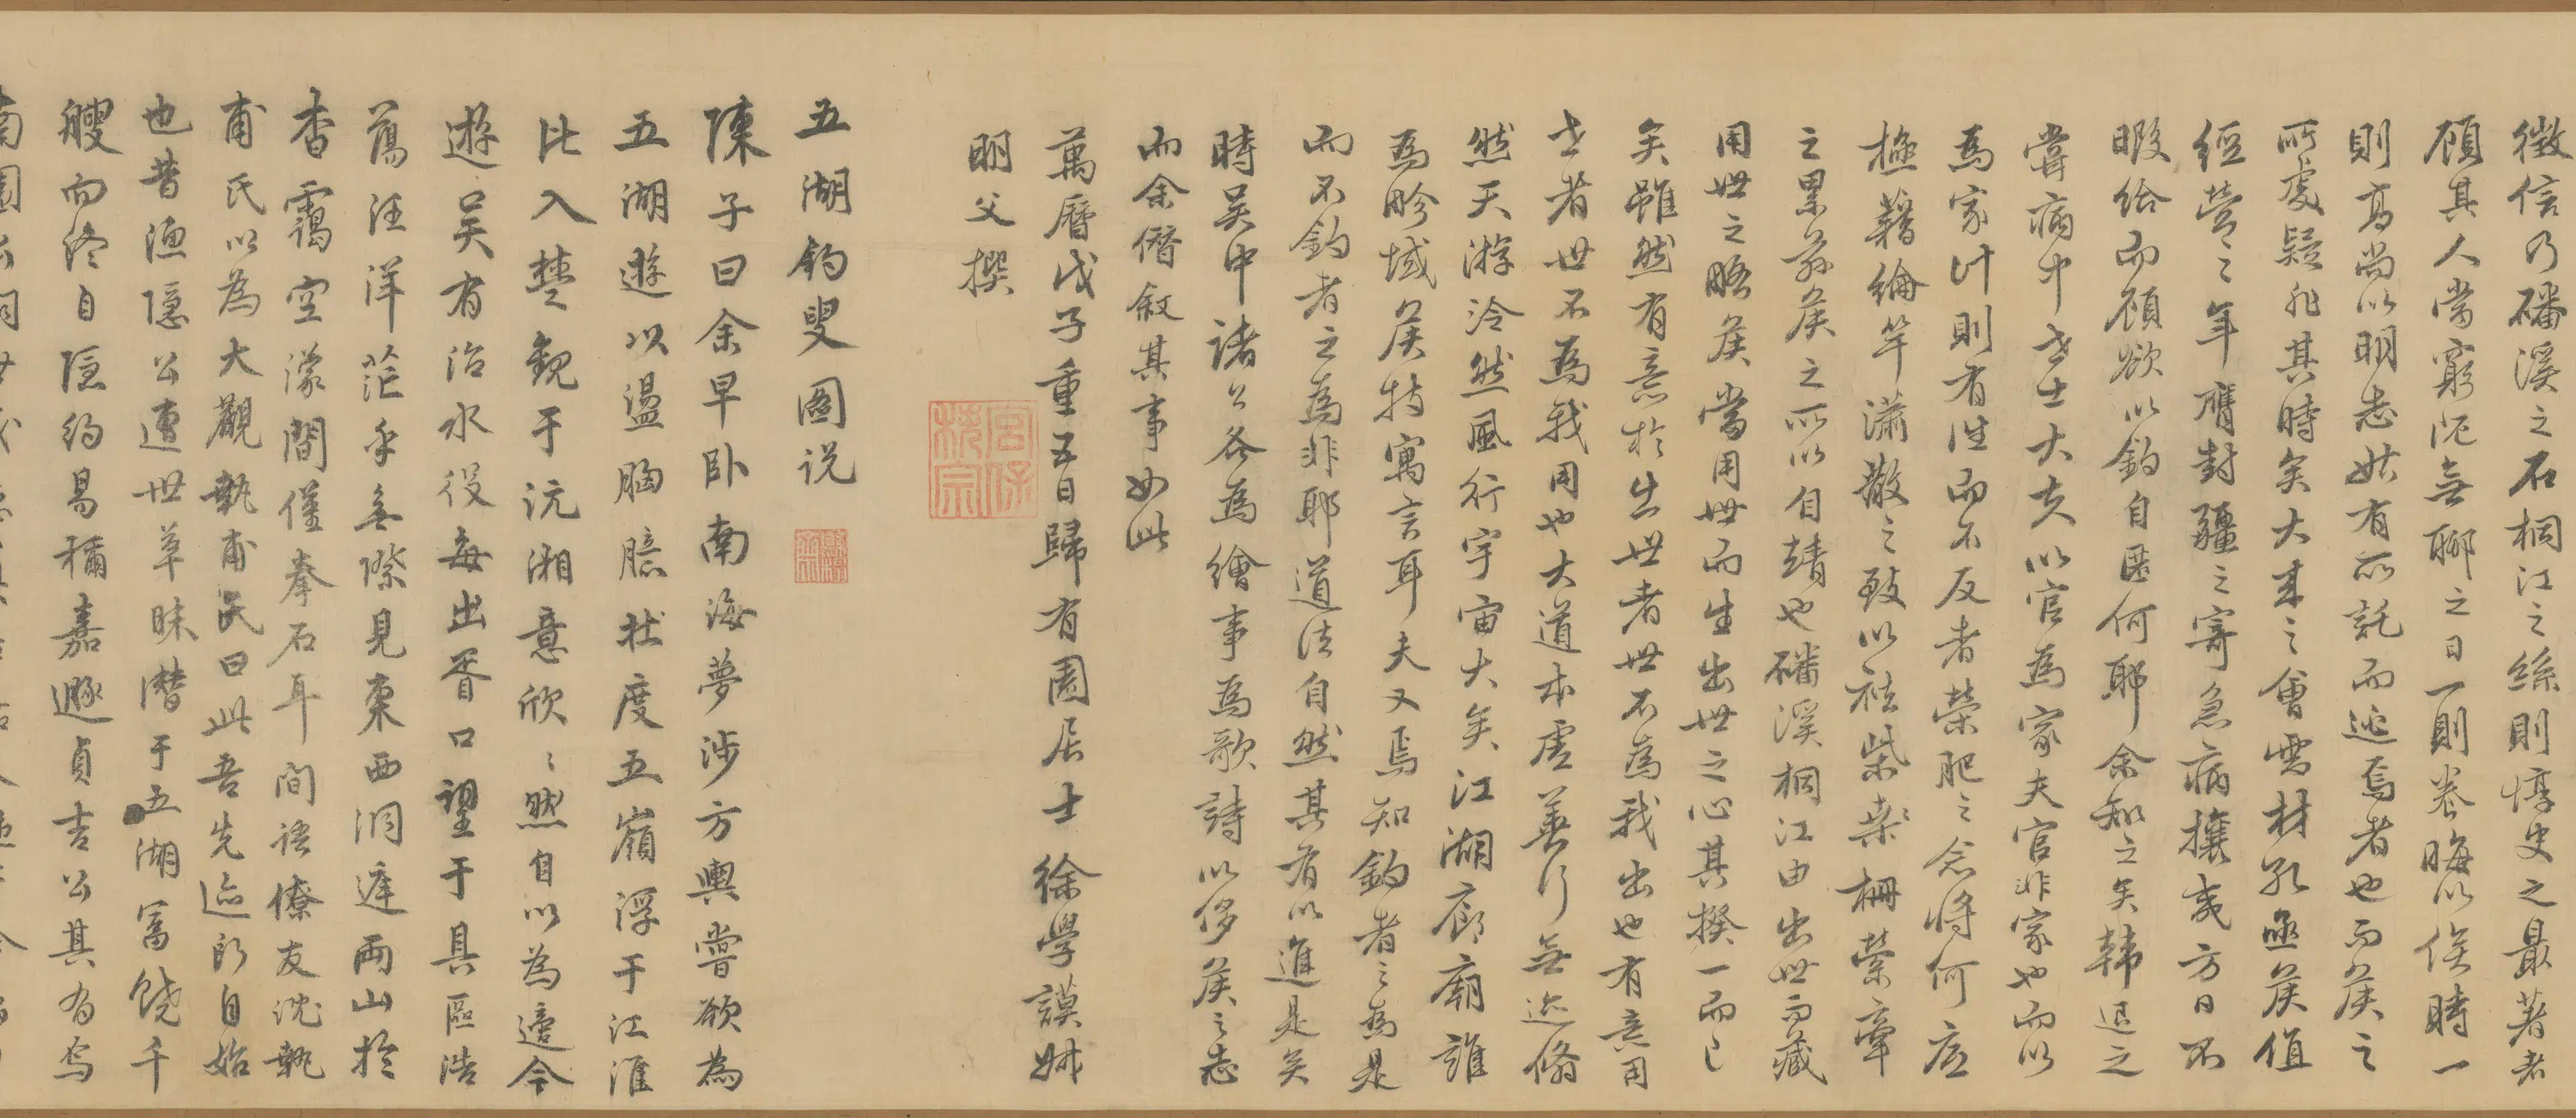 徵信乃磻溪之石桐江之絲則惇史之最著者
顧其人當窮阨無聊之日一則養晦以俟時一
則高尚以明志姑有所託而逃焉者也而侯之
所處疑非其時矣大來之會需材孔亟侯值
經營之年膺封疆之寄急病攘夷方日不
暇給而顧欲以釣自匿何耶余知之矣韓退之
嘗病中世士大夫以官為家夫官非家也而以
為家計則有往而不反者榮肥之念將何底
極藉綸竿瀟散之致以祛柴柵縈牽
之累茲侯之所以自靖也磻溪桐江由出世而藏
用世之略侯當用世而生出世之心其揆一而已
矣雖然有意於出世者世不為我出也有意用
世者世不為我用也大道本虛善行無迹翛
然天游泠然風行宇宙大矣江湖廊廟誰
為畛域侯特寓言耳夫又焉知釣者之為是
而不釣者之為非耶道法自然其有以進是矣
時吳中諸公各為繪事為歌詩以侈侯之志
而余僭敘其事如此
萬曆戊子重五日歸有園居士徐學謨姊
明父撰
宮保
秩宗
五湖釣叟圖說
陳子曰余早卧南海夢涉方輿嘗欲為
五湖遊以盪胸臆壯度五嶺浮于江淮
比入楚觀于沅湘意欣々然自以為適今
遊吳有治水役每出胥口望于具區浩
蕩汪洋茫乎無際見東西洞庭兩山於
杳靄空濛間僅拳石耳間語僚友沈執
甫氏以為大觀執甫氏曰此吾先迹所自始
也昔漁隱公遭世草昧潛于五湖富饒千
艘而終自隱約易稱嘉遯貞吉公其有焉